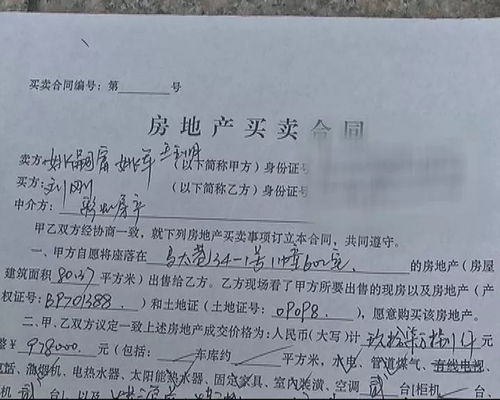 买卖合同编号：第 号
房地产买卖合同
卖方：姚 (以下简称甲方)身份证号
买方：刘刚 (以下简称乙方)身份证号
中介方：
甲乙双方经协商一致，就下列房地产买卖事项订立本合同，共同遵守。
一、甲方自愿将座落在 134-1号 的房地产（房屋
建筑面积 80.37 平方米）出售给乙方。乙方现场看了甲方所要出售的现房以及房地产（产
权证号： 701388 ）和土地证（土地证号： 09098 ），愿意购买该房地产。
二、甲、乙双方议定一致上述房地产成交价格为：人民币（大写）计 玖拾柒万捌仟元
整¥ 978000 元（包括： 车库约 平方米，水电、管道煤气、有线电视、
电话、油烟机、电热水器、太阳能热水器、固定家具、室内装潢、空调 贰 台[柜机 台、